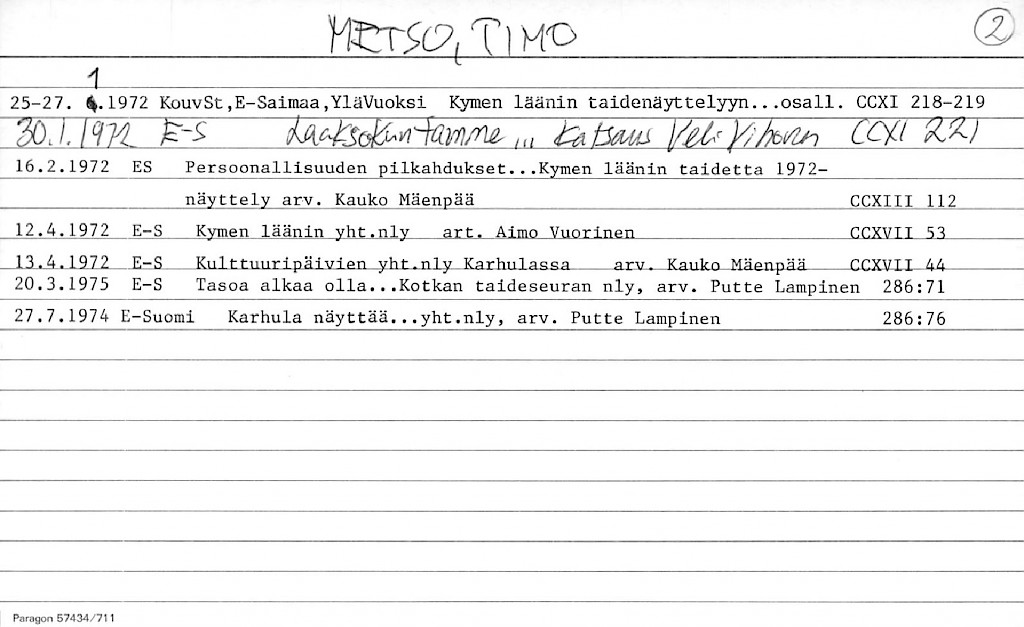 METSO, TIMO 2
1
25-27. .1972 KouvSt,E-Saimaa,YläVuoksi Kymen läänin taidenäyttelyyn...osall. CCXI 218-219
30.1.1972 E-S Laaksokuntamme ... Katsaus Veli Vihoven CCXI 221
16.2.1972 ES Persoonallisuuden pilkahdukset...Kymen läänin taidetta 1972-
näyttely arv. Kauko Mäenpää CCXIII 112
12.4.1972 E-S Kymen läänin yht.nly art. Aimo Vuorinen CCXVII 53
13.4.1972 E-S Kulttuuripäivien yht.nly Karhulassa arv. Kauko Mäenpää CCXVII 44
20.3.1975 E-S Tasoa alkaa olla...Kotkan taideseuran nly, arv. Putte Lampinen 286:71
27.7.1974 E-Suomi Karhula näyttää...yht.nly, arv. Putte Lampinen 286:76
Paragon 57434/711